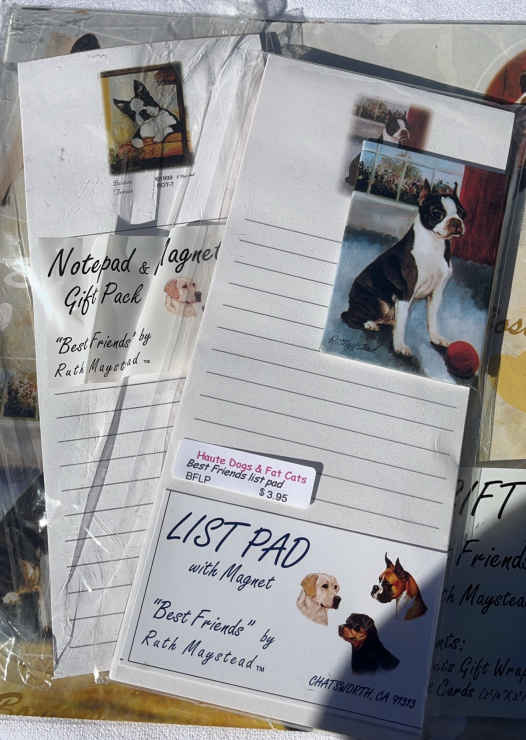 Boston
Terrier
Notepad & Magnet
Gift Pack
"Best Friends" by
Ruth Maystead ™
Haute Dogs & Fat Cats
Best Friends list pad
BFLP
$3.95
LIST PAD
with Magnet
"Best Friends" by
Ruth Maystead ™
CHATSWORTH, CA 91313
IFT
Friends
th Maystea
nts:
Gift Wrap
Cards